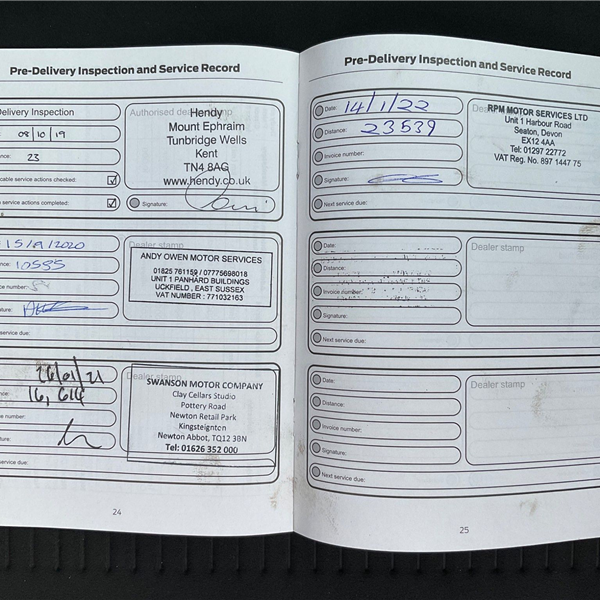 Pre-Delivery Inspection and Service Record
Delivery Inspection
08/10/19
nce: 23
cable service actions checked:
service actions completed:
Authorised dealer stamp
Hendy
Mount Ephraim
Tunbridge Wells
Kent
TN4 8AG
www.hendy.co.uk
Signature:
15/9/2020
nce: 10595
e number:
ature:
service due:
Dealer stamp
ANDY OWEN MOTOR SERVICES
01825 761159 / 07775698018
UNIT 1 PANHARD BUILDINGS
UCKFIELD, EAST SUSSEX
VAT NUMBER : 771032163
26/01/21
nce: 16,614
e number:
ature:
service due:
Dealer stamp
SWANSON MOTOR COMPANY
Clay Cellars Studio
Pottery Road
Newton Retail Park
Kingsteignton
Newton Abbot, TQ12 3BN
Tel: 01626 352 000
24
Pre-Delivery Inspection and Service Record
Date: 14/1/22
Distance: 23539
Invoice number:
Signature:
Next service due:
RPM MOTOR SERVICES LTD
Unit 1 Harbour Road
Seaton, Devon
EX12 4AA
Tel: 01297 22772
VAT Reg. No. 897 1447 75
Date:
Distance:
Invoice number:
Signature:
Next service due:
Dealer stamp
Date:
Distance:
Invoice number:
Signature:
Next service due:
Dealer stamp
25